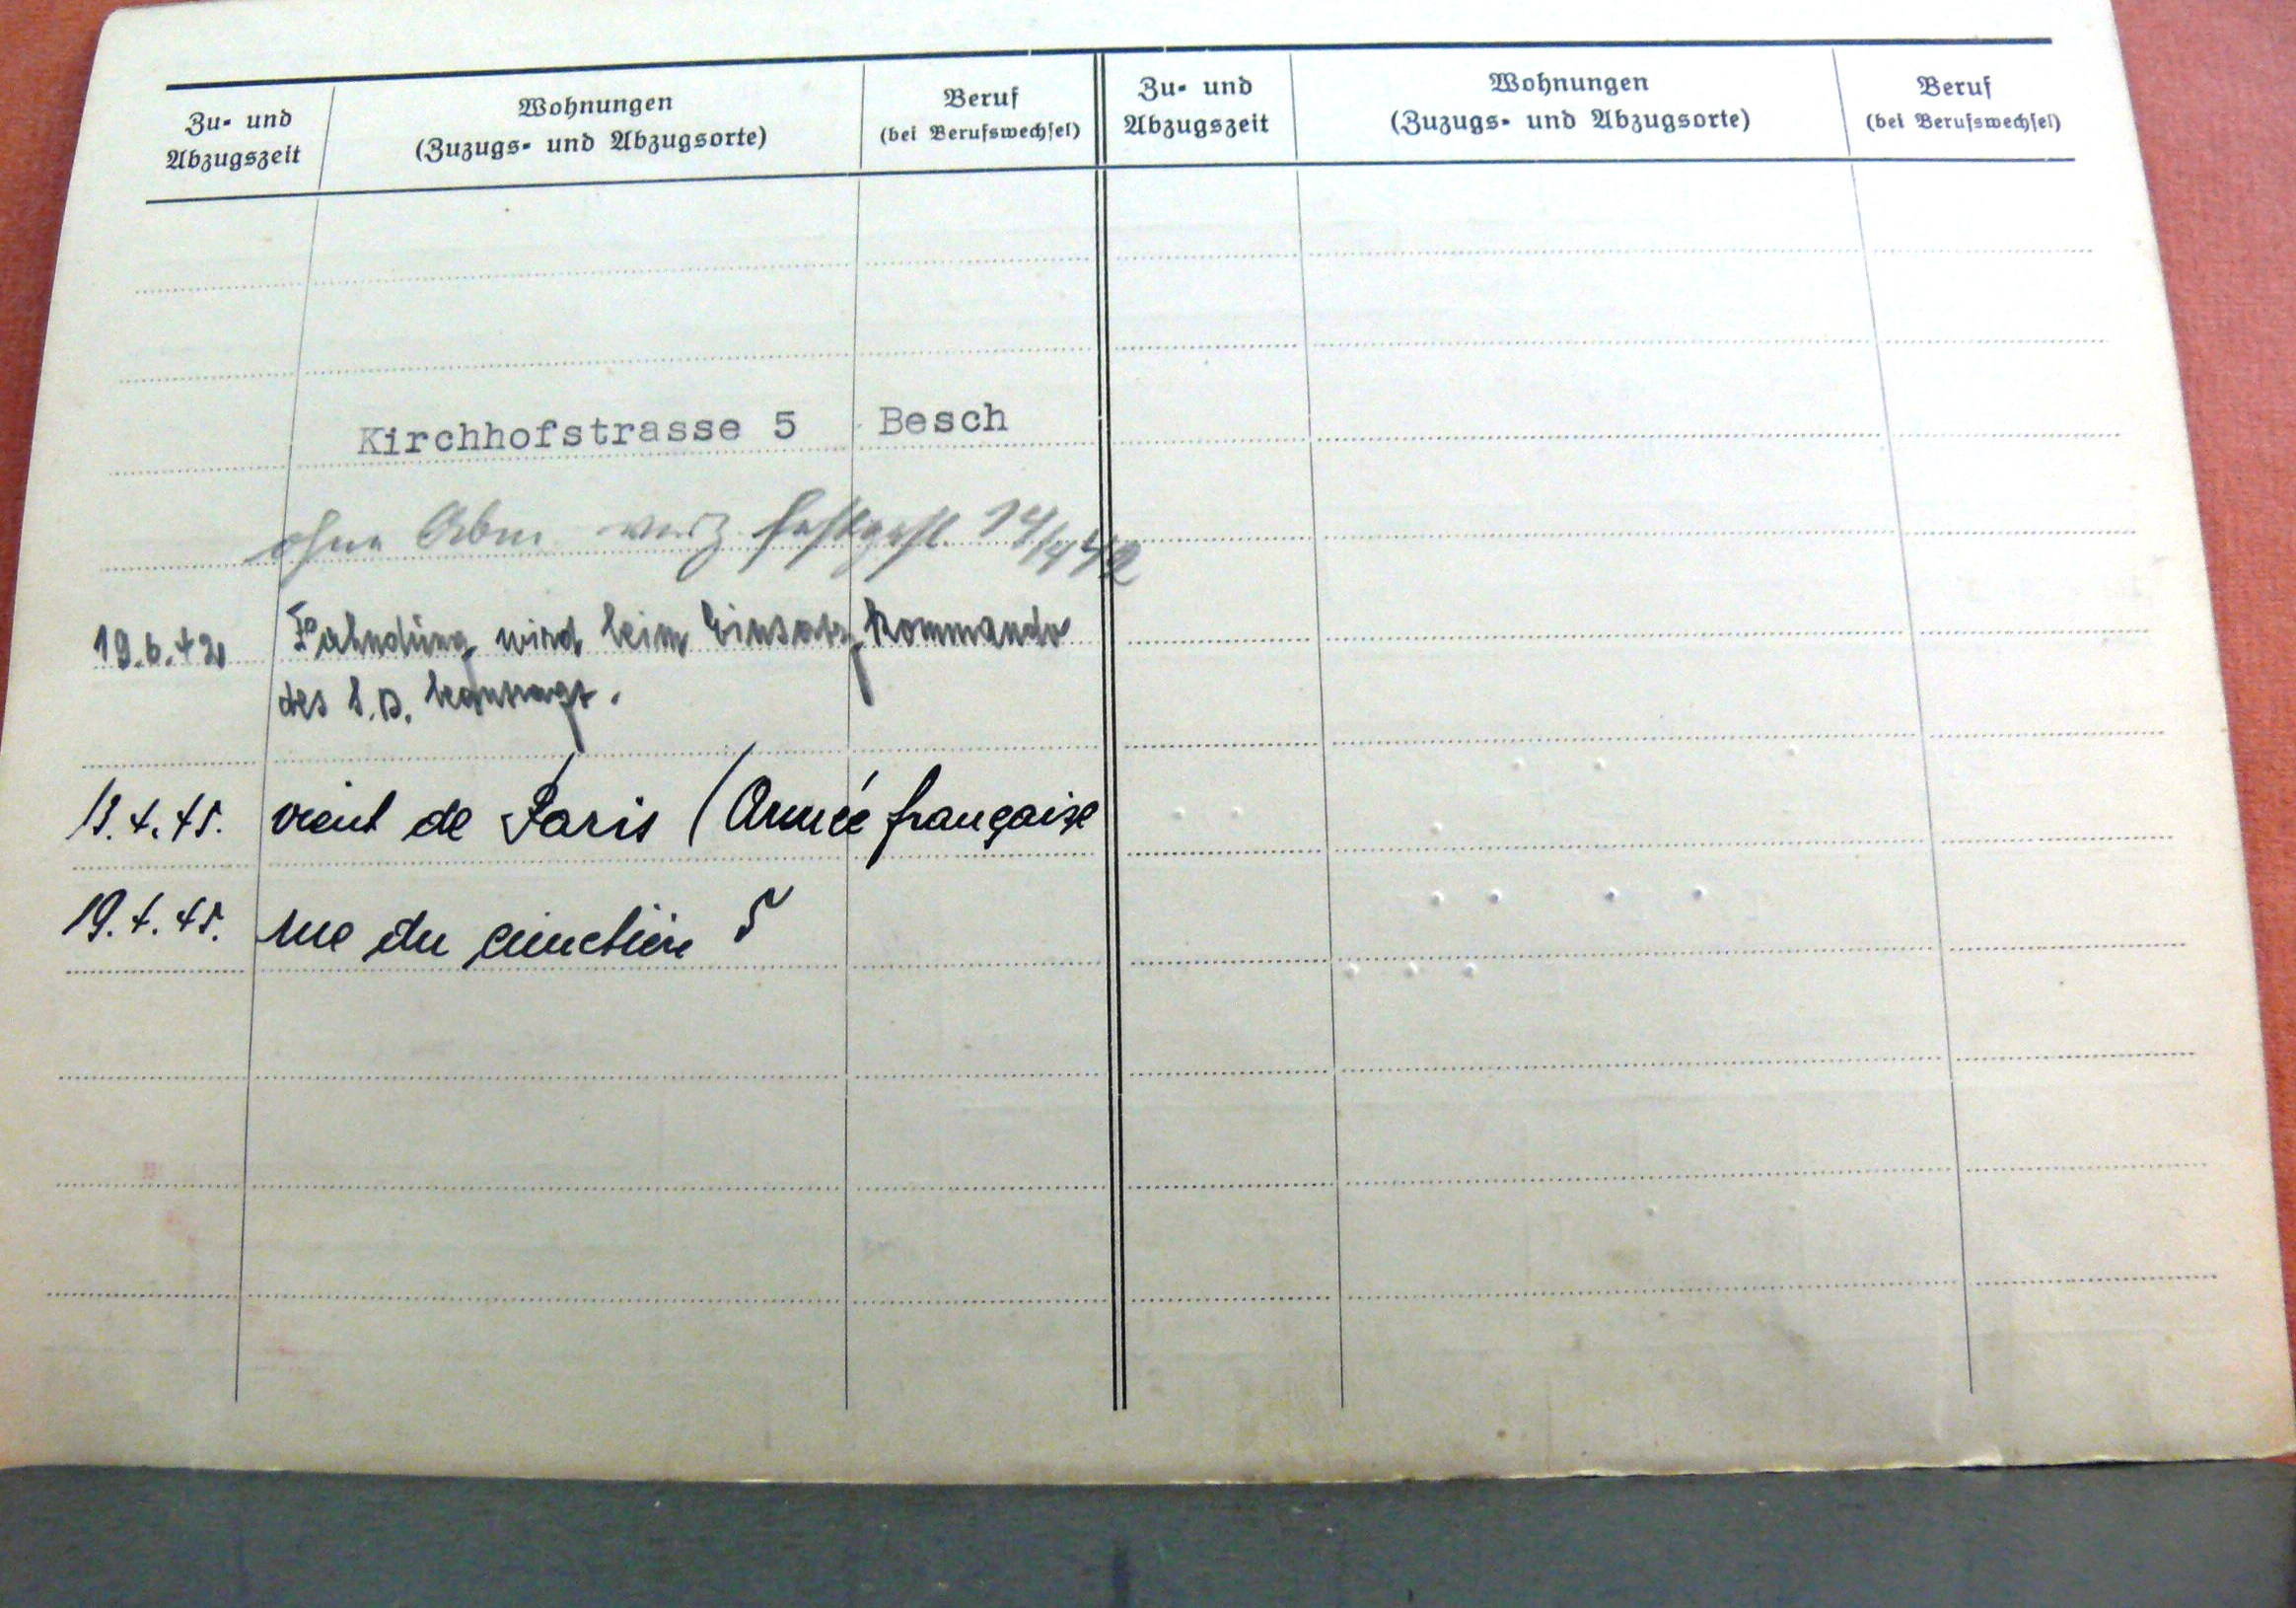 Zu- und
Abzugszeit
Wohnungen
(Zuzugs- und Abzugsorte)
Beruf
(bei Berufswechsel)
Zu- und
Abzugszeit
Wohnungen
(Zuzugs- und Abzugsorte)
Beruf
(bei Berufswechsel)
Kirchhofstrasse 5 Besch
ohne Abm verz festgest.
19.6.42 Fahndung wird beim Einsatzkommando
des S.D. beantragt.
13.4.45. vient de Paris (Armée française
19.4.45. rue du cimetière 5